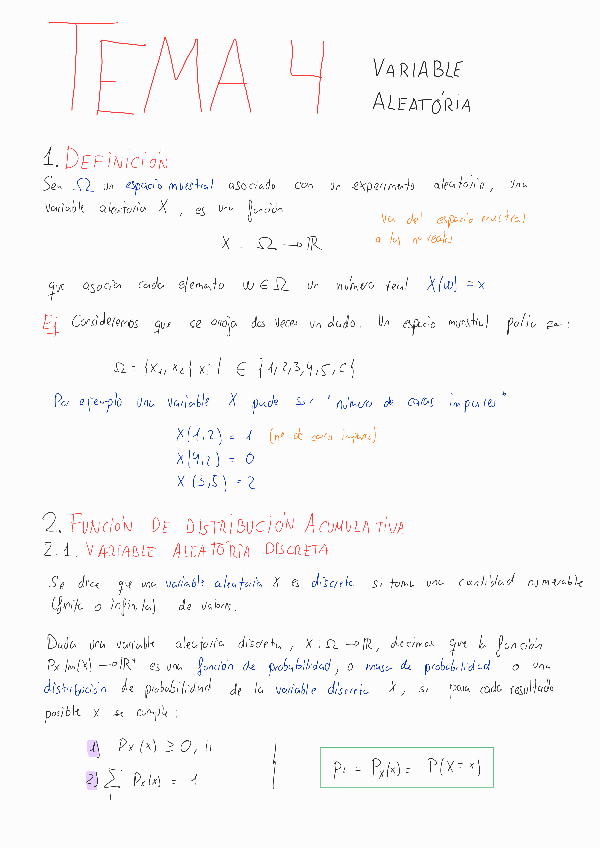 TEMA 4
VARIABLE
ALEATÓRIA
1. DEFINICIÓN
Sea Ω un espacio muestral asociado con un experimento aleatorio, una
variable aleatoria X, es una función
X : Ω → ℝ
Va del espacio muestral
a los nº reales
que asocia cada elemento w ∈ Ω un número real X(w) = x
Ej Consideremos que se arroja dos veces un dado. Un espacio muestral podría ser:
Ω = {x₁, x₂ | xi ∈ {1,2,3,4,5,6}
Por ejemplo una variable X puede ser "número de caras impares"
X(1,2) = 1 (nº de caras impares)
X(4,2) = 0
X(3,5) = 2
2. FUNCIÓN DE DISTRIBUCIÓN ACUMULATIVA
2.1. VARIABLE ALEATÓRIA DISCRETA
Se dice que una variable aleatoria X es discreta si toma una cantidad numerable
(finita o infinita) de valores.
Dada una variable aleatoria discreta, X : Ω → ℝ, decimos que la función
Px Im(X) → ℝ⁺ es una función de probabilidad, o masa de probabilidad o una
distribución de probabilidad de la variable discreta X, si para cada resultado
posible x se cumple:
1) Px(x) ≥ 0,
2) ∑ Px(x) = 1
i
Pi = Px(x) = P(X = x)